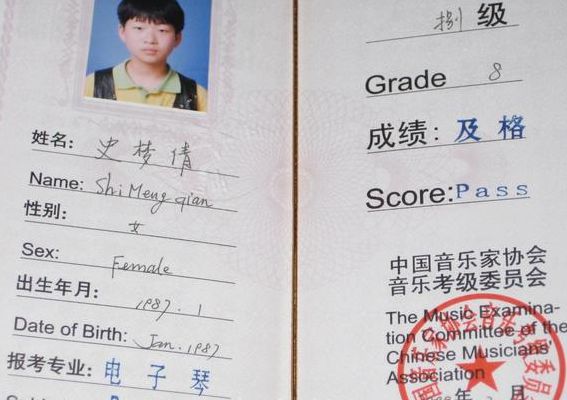 姓名: 史梦倩
Name: Shi Meng qian
性别: 女
Sex: Female
出生年月: 1987.1
Date of Birth: Jan.1987
报考专业: 电子琴
捌 级
Grade 8
成绩: 及格
Score: Pass
中国音乐家协会
音乐考级委员会
The Music Examina-
tion Committee of the
Chinese Musicians'
Association
年 月